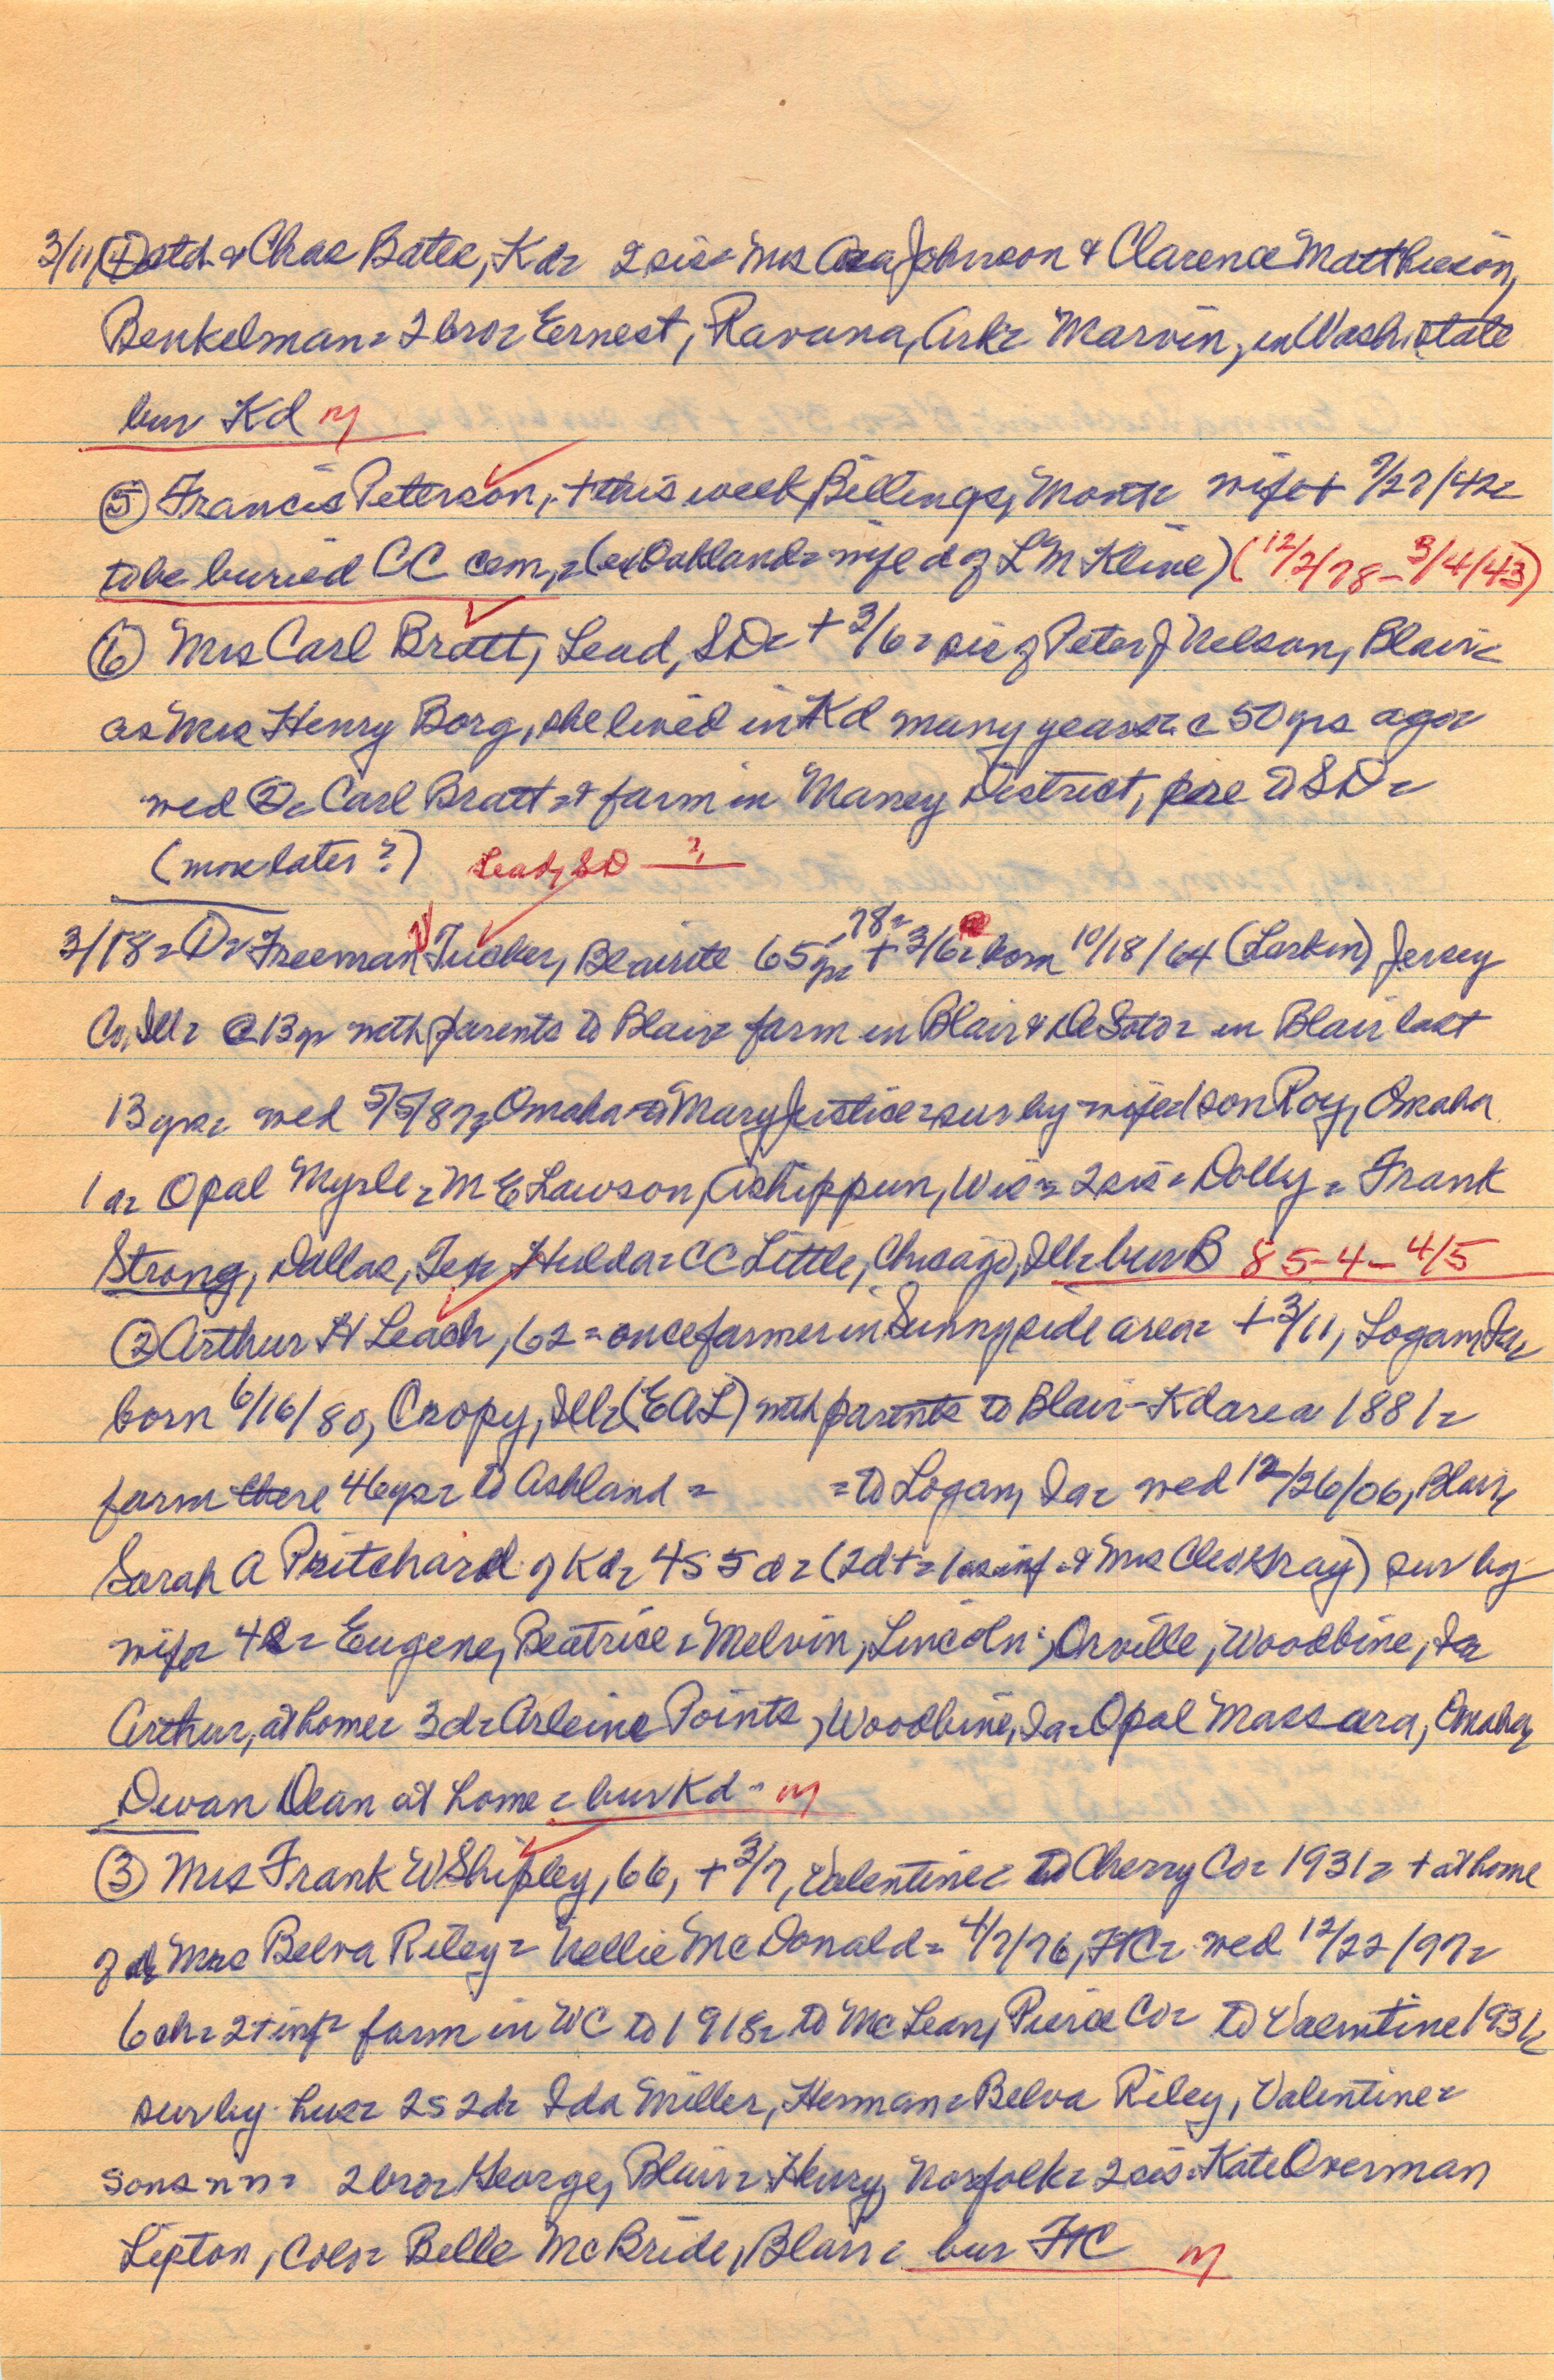 3/11 (4) ctd & Chas Bates, Kd= 2 sis= Mrs Asa Johnson & Clarence Matthieson,
Benkelman= 2 bro= Ernest, Ravana, Ark= Marvin, in Wash. state
bur Kd m
(5) Francis Peterson, + this week, Billings, Mont= wife + 7/27/42=
to be buried CC cem,= (ex Oakland= wife d of L M Kline) (12/2/78 - 3/4/43)
(6) Mrs Carl Bratt, Lead, SD= + 3/6= sis of Peter J Nelson, Blair=
as Mrs Henry Borg, she lived in Kd many years= c 50 yrs ago=
wed (2)= Carl Bratt= & farm in Maney District, here to SD=
(more later?) Lead, SD ?
3/18= (1)= Freeman Tucker, Blairite 65 yr= 78= + 3/6= born 10/18/64 (Larkin) Jersey
Co, Ill= @ 13 yr with parents to Blair= farm in Blair & DeSoto= in Blair last
13 yrs= wed 5/5/87, Omaha= to Mary Justice= sur by wife= 1 son Roy, Omaha
1 d= Opal Myrle= M E Lawson, Ashippun, Wis= 2 sis= Dolly= Frank
Strong, Dallas, Tex= Hulda= CC Little, Chicago, Ill= bur B 85-4-4/5
(2) Arthur H Leach, 62= once farmer in Sunnyside area= + 3/11, Logan, Ia=
born 6/16/80, Cropy, Ill= (EAL) with parents to Blair-Kd area 1881=
farm there 46 yrs= to Ashland= =to Logan, Ia= wed 12/26/06, Blair,
Sarah A Pritchard of Kd= 4s 5d= (2d += 1 as inf= & Mrs Cleo Khray) sur by
wife= 4s= Eugene, Beatrice= Melvin, Lincoln; Orville, Woodbine, Ia
Arthur, at home= 3d= Arleine Points, Woodbine, Ia= Opal Massara, Omaha,
Dwan Dean at home= bur Kd= m
(3) Mrs Frank W Shipley, 66, + 3/7, Valentine= to Cherry Co= 1931= + at home
of d= Mrs Belva Riley= Nellie McDonald= 4/7/76, FtC= wed 12/22/97=
6 ch= 2 + inf= farm in WC to 1918= to McLean, Pierce Co= to Valentine 1931=
sur by hus= 2s 2d= Ida Miller, Herman= Belva Riley, Valentine=
sons nn= 2 bro= George, Blair= Henry, Norfolk= 2 sis= Kate Overman
Lipton, Colo= Belle McBride, Blair= bur FtC m